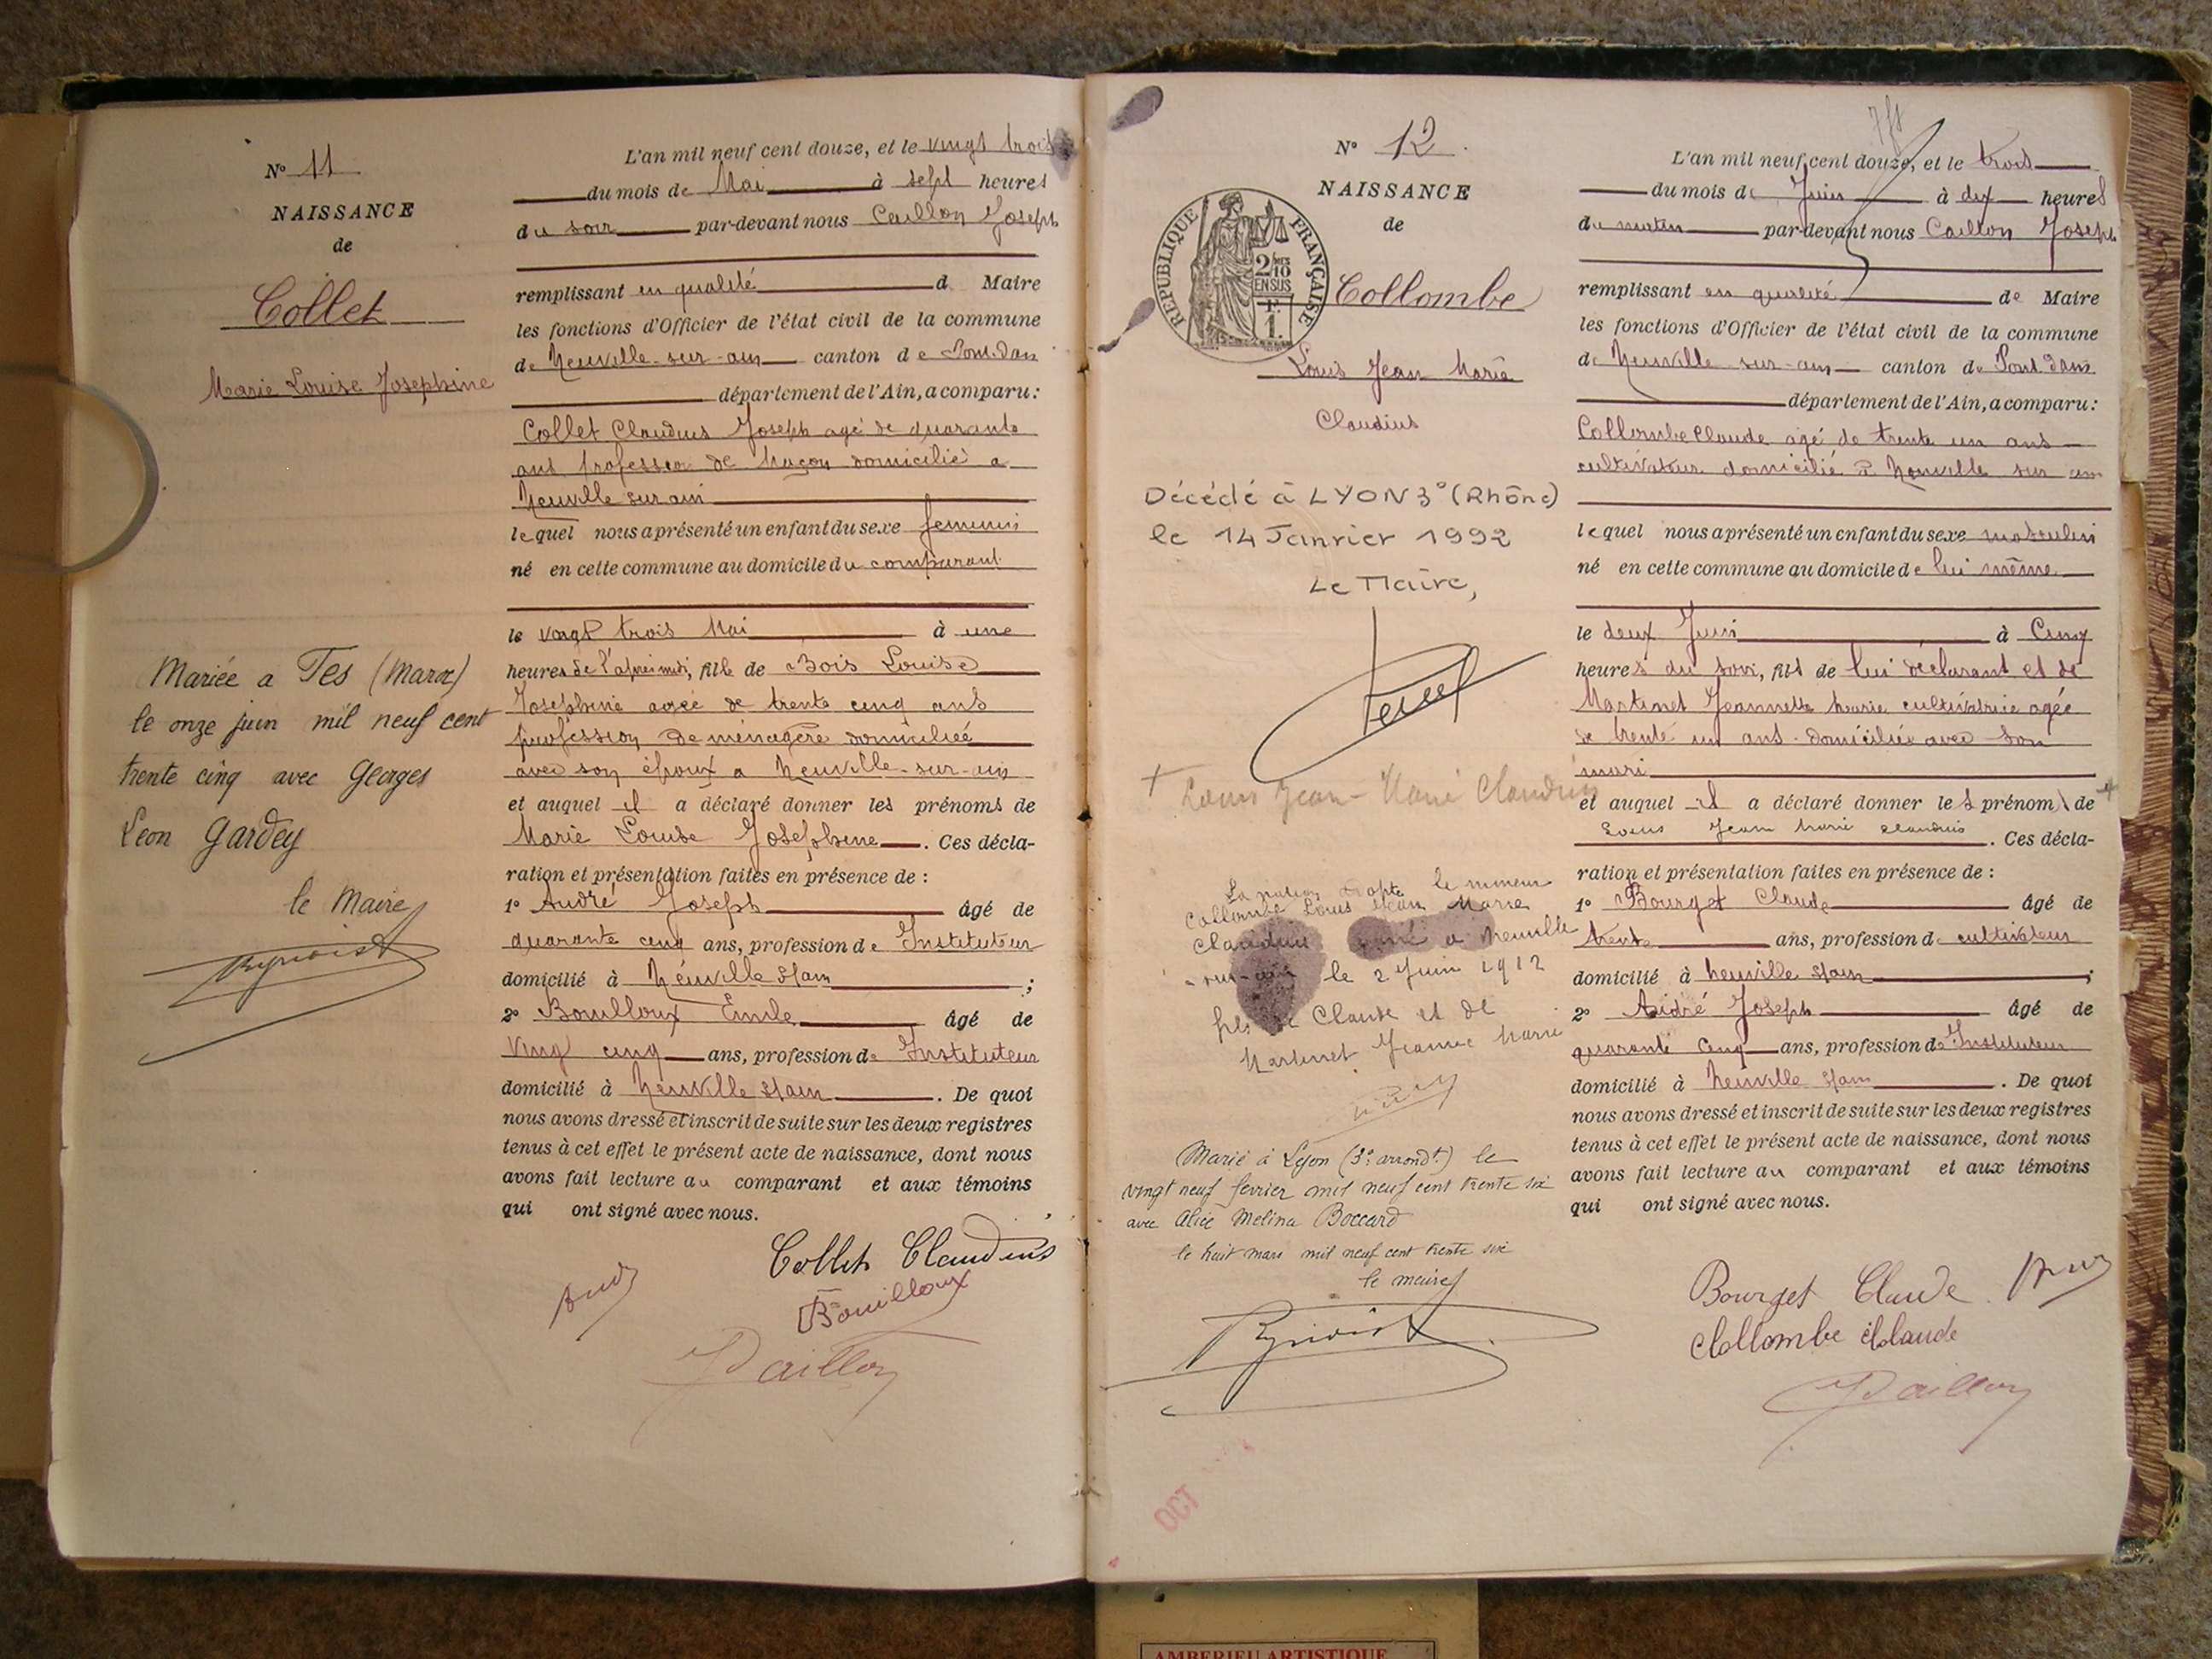 Nº 11
NAISSANCE
de
Collet
Marie Louise Josephine
Mariée a Fes (Maroc)
le onze juin mil neuf cent
trente cinq avec Georges
Leon Gardey
le Maire
L'an mil neuf cent douze, et le vingt trois
du mois de Mai à sept heures
du soir par-devant nous Caillon Joseph
remplissant en qualité d Maire
les fonctions d'Officier de l'état civil de la commune
de Neuville-sur-ain canton de Pont-dain
département de l'Ain, a comparu:
Collet Claudius Joseph agé de quarante
ans profession de Maçon domicilié a
Neuville sur ain
lequel nous a présenté un enfant du sexe feminin
né en cette commune au domicile du comparant
le vingt trois Mai à une
heures de l'apres midi, fille de Bois Louise
Josephine agée de trente cinq ans
profession de ménagère domiciliée
avec son époux a Neuville-sur-ain
et auquel il a déclaré donner les prénoms de
Marie Louise Josephine. Ces décla-
ration et présentation faites en présence de :
1º André Joseph âgé de
quarante cinq ans, profession de Instituteur
domicilié à Neuville s/ain ;
2º Bouilloux Emile âgé de
Vingt cinq ans, profession de Instituteur
domicilié à Neuville s/ain. De quoi
nous avons dressé et inscrit de suite sur les deux registres
tenus à cet effet le présent acte de naissance, dont nous
avons fait lecture au comparant et aux témoins
qui ont signé avec nous.
Collet Claudius
Bouilloux
JCaillon
Nº 12.
NAISSANCE
de
RÉPUBLIQUE FRANÇAISE
2/10
EN SUS
1F.
Collombe
Louis Jean Marie
Claudius
Décédé à LYON 3° (Rhône)
le 14 Janvier 1992
Le Maire,
+ Louis Jean-Marie Claudius
La nation adopte le mineur
Collombe Louis Jean Marie
Claudius né a Neuville
sur-ain le 2 Juin 1912
fils de Claude et de
Martinet Jeanne Marie
Marié à Lyon (3e arrondt) le
vingt neuf fevrier mil neuf cent trente six
avec Alice Melina Boccard
le huit mars mil neuf cent trente six
le maire
OCT
L'an mil neuf cent douze, et le trois
du mois de Juin à dix heures
du matin par-devant nous Caillon Joseph
remplissant en qualité de Maire
les fonctions d'Officier de l'état civil de la commune
de Neuville sur-ain canton de Pont dain
département de l'Ain, a comparu:
Collombe Claude agé de trente un ans
cultivateur domicilié à Neuville sur ain
lequel nous a présenté un enfant du sexe masculin
né en cette commune au domicile de lui même
le deux Juin à Cinq
heures du soir, fils de lui déclarant et de
Martinet Jeannette Marie cultivatrice agée
de trente un ans domiciliée avec son
mari
et auquel il a déclaré donner les prénoms de +
Louis Jean Marie Claudius. Ces décla-
ration et présentation faites en présence de :
1º Bourget Claude âgé de
trente ans, profession de cultivateur
domicilié à Neuville s/ain ;
2º André Joseph âgé de
quarante cinq ans, profession de Instituteur
domicilié à Neuville s/ain. De quoi
nous avons dressé et inscrit de suite sur les deux registres
tenus à cet effet le présent acte de naissance, dont nous
avons fait lecture au comparant et aux témoins
qui ont signé avec nous.
Bourget Claude
Collombe Claude
JCaillon
AMBERIEU ARTISTIQUE